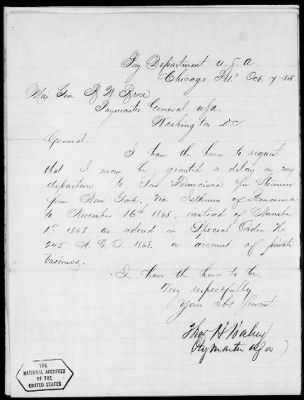 Pay Department U.S.A.
Chicago Ills. Oct. 1868
Maj. Gen. B. W. Brice
Paymaster General U.S.A.
Washington D.C.
General.
I have the honor to request
that I may be granted a delay in my
departure to San Francisco per Steamer
from New York, via Isthmus of Panama
to November 16th 1868, instead of November
1st 1868 as ordered in Special Order No
245 A.G.O. 1868, on account of private
business.
I have the honor to be
Very respectfully
Your obt. Servant.
Paymaster U.S.A.
THE
NATIONAL ARCHIVES
OF THE
UNITED STATES